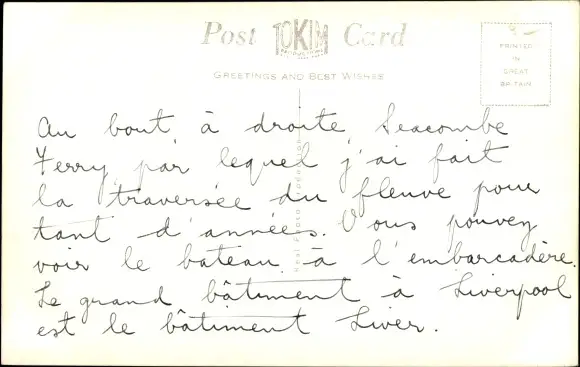 Post TOKIM Card
GREETINGS AND BEST WISHES
9-
PRINTED
IN
GREAT
BRITAIN
Au bout, à droite, Seacombe
Ferry, par lequel j'ai fait
la traversée du fleuve pour
tant d'années. Vous pouvez
voir le bateau à l'embarcadère.
Le grand bâtiment à Liverpool
est le bâtiment Liver.
Real Photo